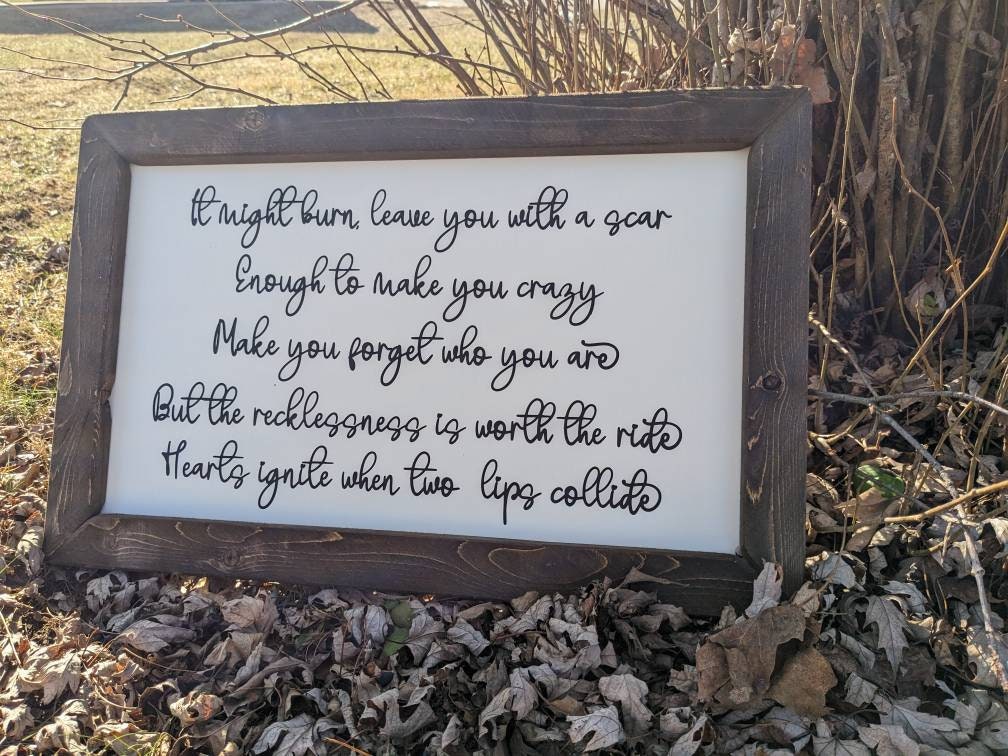 It might burn, leave you with a scar
Enough to make you crazy
Make you forget who you are
But the recklessness is worth the ride
Hearts ignite when two lips collide